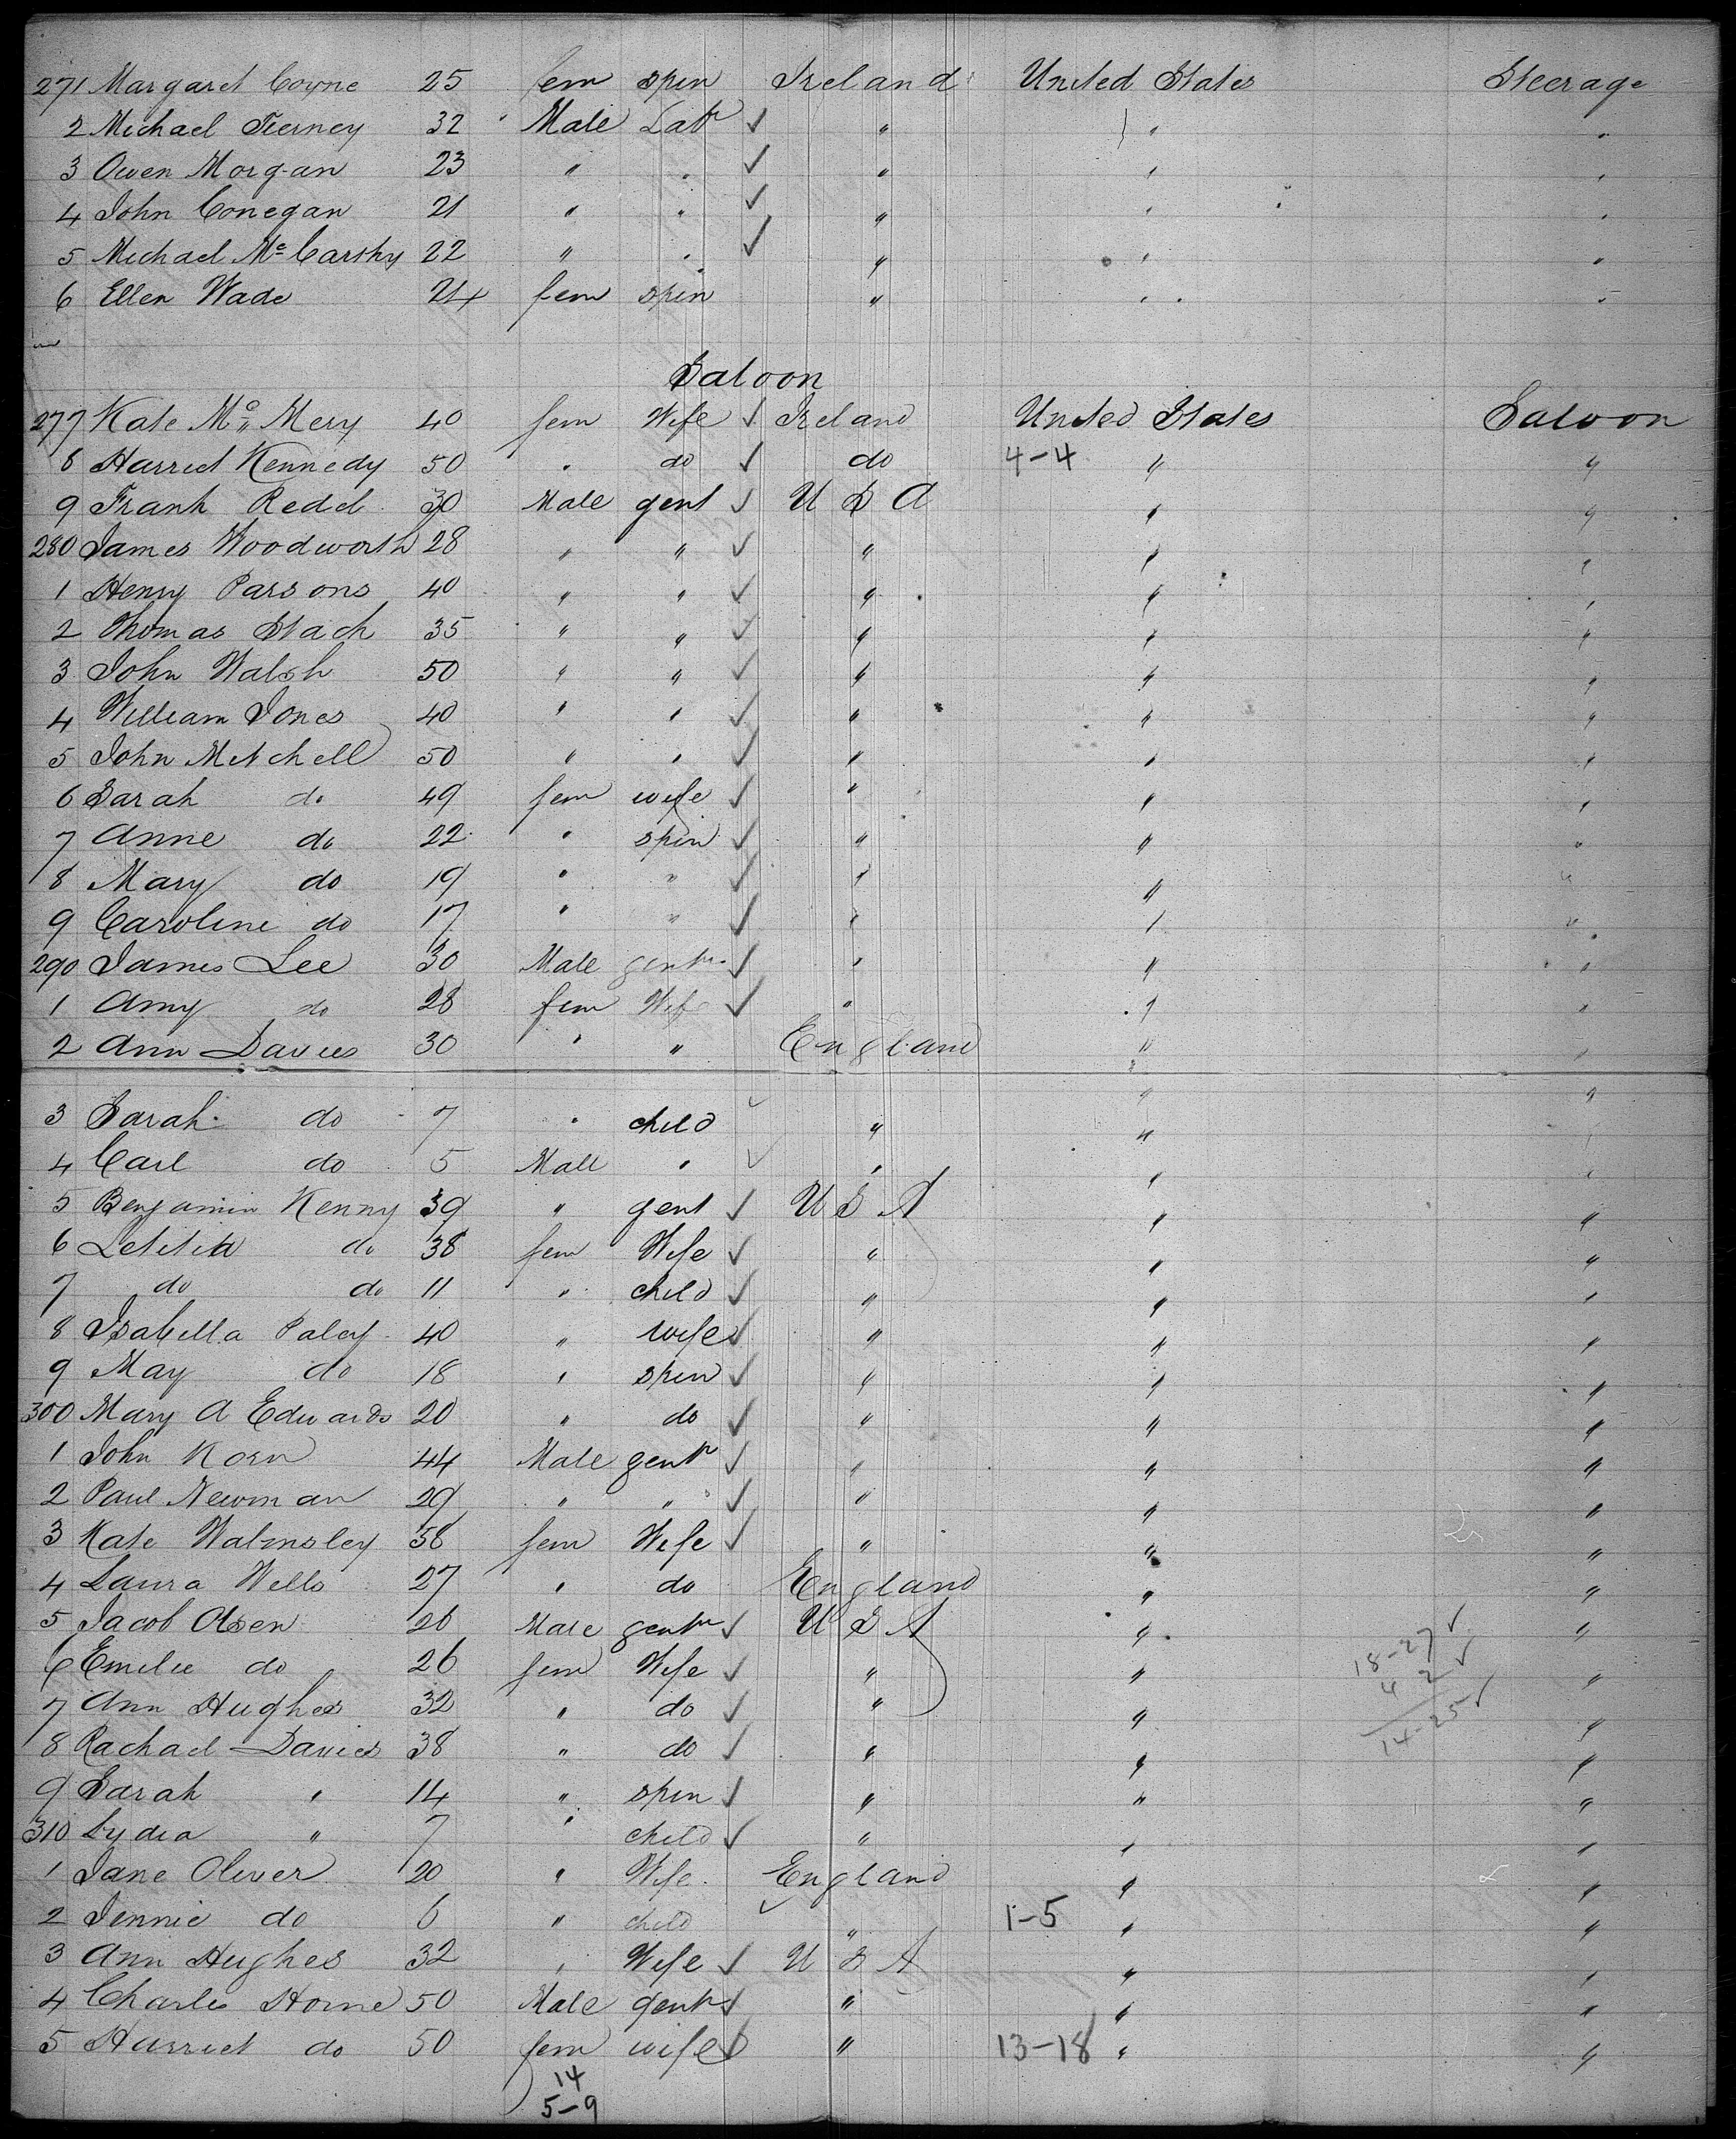 271 Margaret Coyne 25 fem spin Ireland United States Steerage
2 Michael Tierney 32 Male Labr ✓ " " "
3 Owen Morgan 23 " " ✓ " " "
4 John Conegan 21 " " ✓ " " "
5 Michael McCarthy 22 " " ✓ " " "
6 Ellen Wade 24 fem spin " " "
Saloon
277 Kate Mc Mery 40 fem Wife ✓ Ireland United States Saloon
8 Harriet Kennedy 50 " do ✓ do 4-4 " "
9 Frank Redd 30 Male gent ✓ U S A " "
280 James Woodworth 28 " " ✓ " " "
1 Henry Parsons 40 " " ✓ " " "
2 Thomas Stach 35 " " ✓ " " "
3 John Walsh 50 " " ✓ " " "
4 William Jones 40 " " ✓ " " "
5 John Mitchell 50 " " ✓ " " "
6 Sarah do 49 fem wife ✓ " " "
7 Anne do 22 " spin ✓ " " "
8 Mary do 19 " " ✓ " " "
9 Caroline do 17 " " ✓ " " "
290 James Lee 30 Male gentn ✓ " " "
1 Amy do 28 fem Wife ✓ " " "
2 Ann Davies 30 " " England " "
3 Sarah do 7 " child ✓ " " "
4 Carl do 5 Male " ✓ " " "
5 Benjamin Kenny 39 " gent ✓ U S A " "
6 Letitia do 38 fem Wife ✓ " " "
7 do do 11 " child ✓ " " "
8 Isabella Paley 40 " wife ✓ " " "
9 May do 18 " spin ✓ " " "
300 Mary A Edwards 20 " do ✓ " " "
1 John Korn 44 Male gentn ✓ " " "
2 Paul Newman 29 " " ✓ " " "
3 Kate Walmsley 58 fem Wife ✓ " " "
4 Laura Wells 27 " do England " "
5 Jacob Olsen 26 Male gentn ✓ U S A " 18-27 ✓ "
6 Emilie do 26 fem Wife ✓ " " 4 2 ✓ "
7 Ann Hughes 32 " do ✓ " " 14-25 ✓ "
8 Rachael Davies 38 " do ✓ " " "
9 Sarah " 14 " spin ✓ " " "
310 Lydia " 7 " child ✓ " " "
1 Jane Oliver 20 " Wife England " "
2 Jennie do 6 " child ✓ " 1-5 " "
3 Ann Hughes 32 " Wife ✓ U S A " "
4 Charles Horne 50 Male gentn ✓ " " "
5 Harriet do 50 fem wife ✓ " 13-18 " "
14
5-9